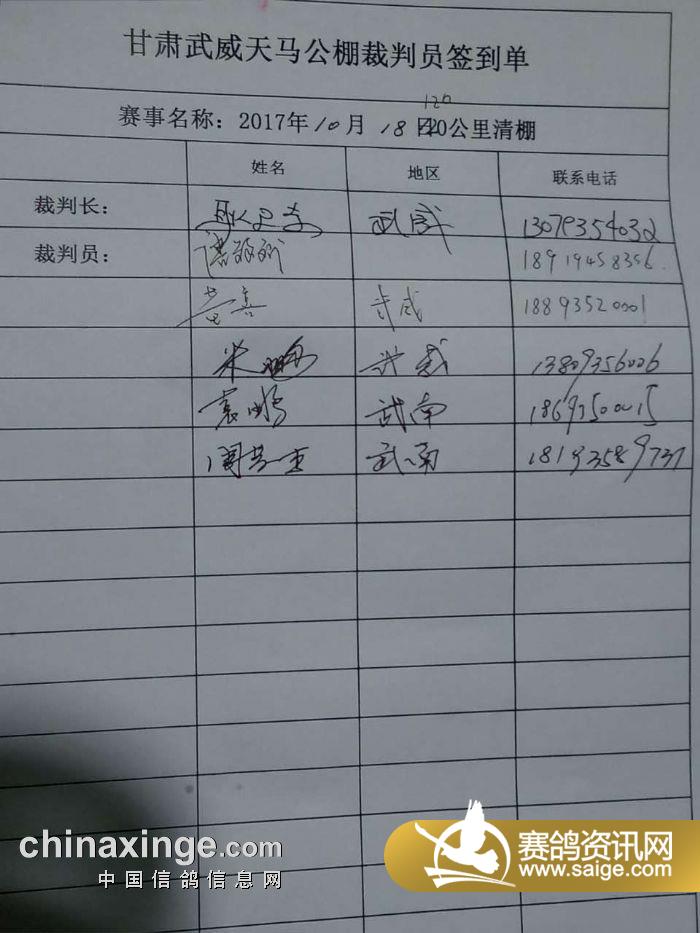 甘肃武威天马公棚裁判员签到单
120
赛事名称：2017年10月18日20公里清棚
姓名 地区 联系电话
裁判长： 武威 13079354032
裁判员： 18919458356
武威 18893520001
朱 武威 13809356006
袁鹏 武南 18693500015
武南 18193589737
chinaxinge.com
中国信鸽信息网
赛鸽资讯网
www.saige.com